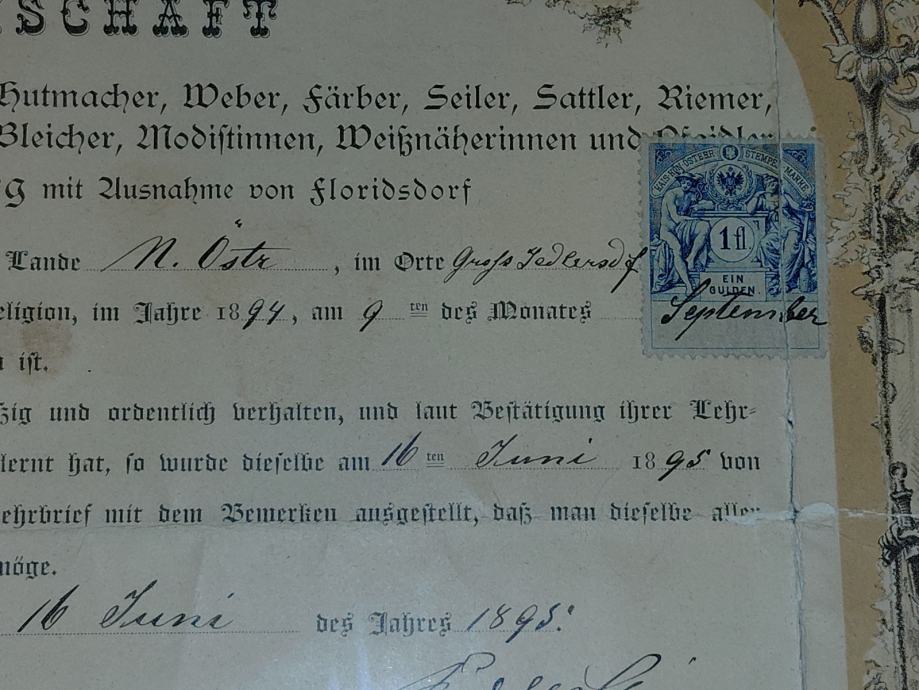 SCHAFT
Hutmacher, Weber, Färber, Seiler, Sattler, Riemer,
Bleicher, Modistinnen, Weißnäherinnen und Pfaidler
g mit Ausnahme von Floridsdorf
KAIS. KÖN. ÖSTERR. STEMPEL MARKE
1 fl
EIN
GULDEN.
Lande N. Östr, im Orte Gross Jedlersdf
eligion, im Jahre 1894, am 9ten des Monates September
n ist.
ßig und ordentlich verhalten, und laut Bestätigung ihrer Lehr-
lernt hat, so wurde dieselbe am 16ten Juni 1895 von
ehrbrief mit dem Bemerken ausgestellt, daß man dieselbe aller
möge.
16 Juni des Jahres 1895.